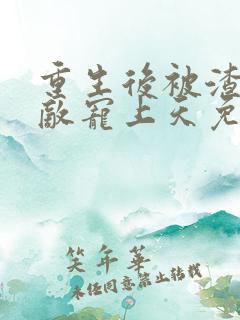 重生後被渣
敵寵上天免
笑年華
未经同意禁止转载